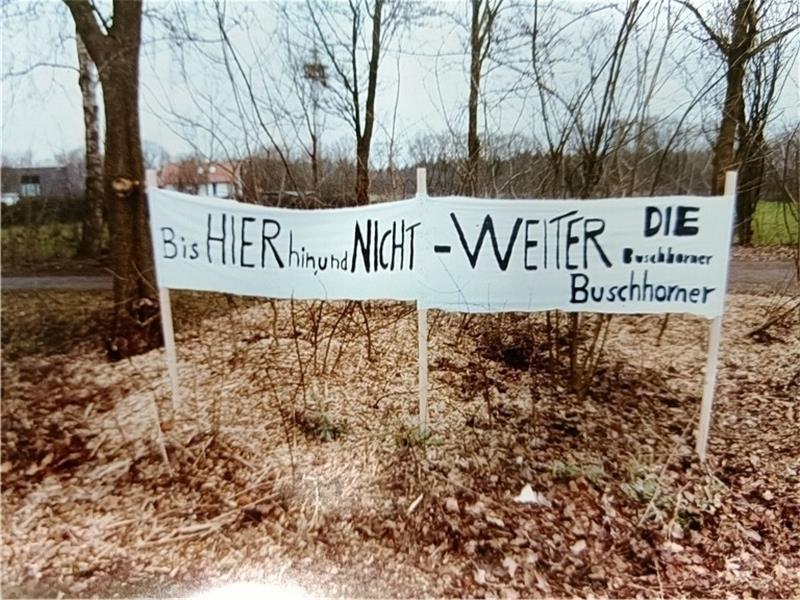 Bis HIER hin, und NICHT - WEITER DIE
Buschhorner
Buschhorner